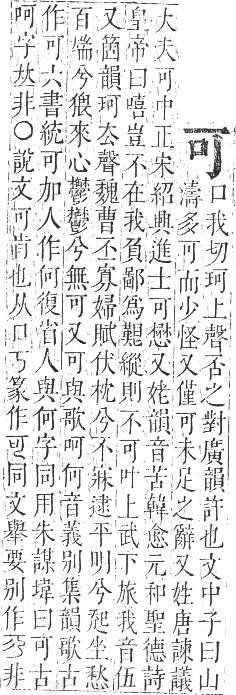 可
口我切珂上聲否之對廣韻許也文中子曰山
濤多可而少怪又僅可未足之辭又姓唐諫議
大夫可中正宋紹興進士可懋又姥韻音苦韓愈元和聖德詩
皇帝曰嘻豈不在我負鄙為艱縱則不可叶上武下旅我音伍
又箇韻珂去聲魏曹丕寡婦賦伏枕兮不寐逮平明兮起坐愁
百端兮猥來心鬱鬱兮無可又可與歌呵何音義別集韻歌古
作可六書統可加人作何復省人與何字同用朱謀㙔曰可古
呵字𠀤非○說文可肯也从口丂篆作同文舉要別作非